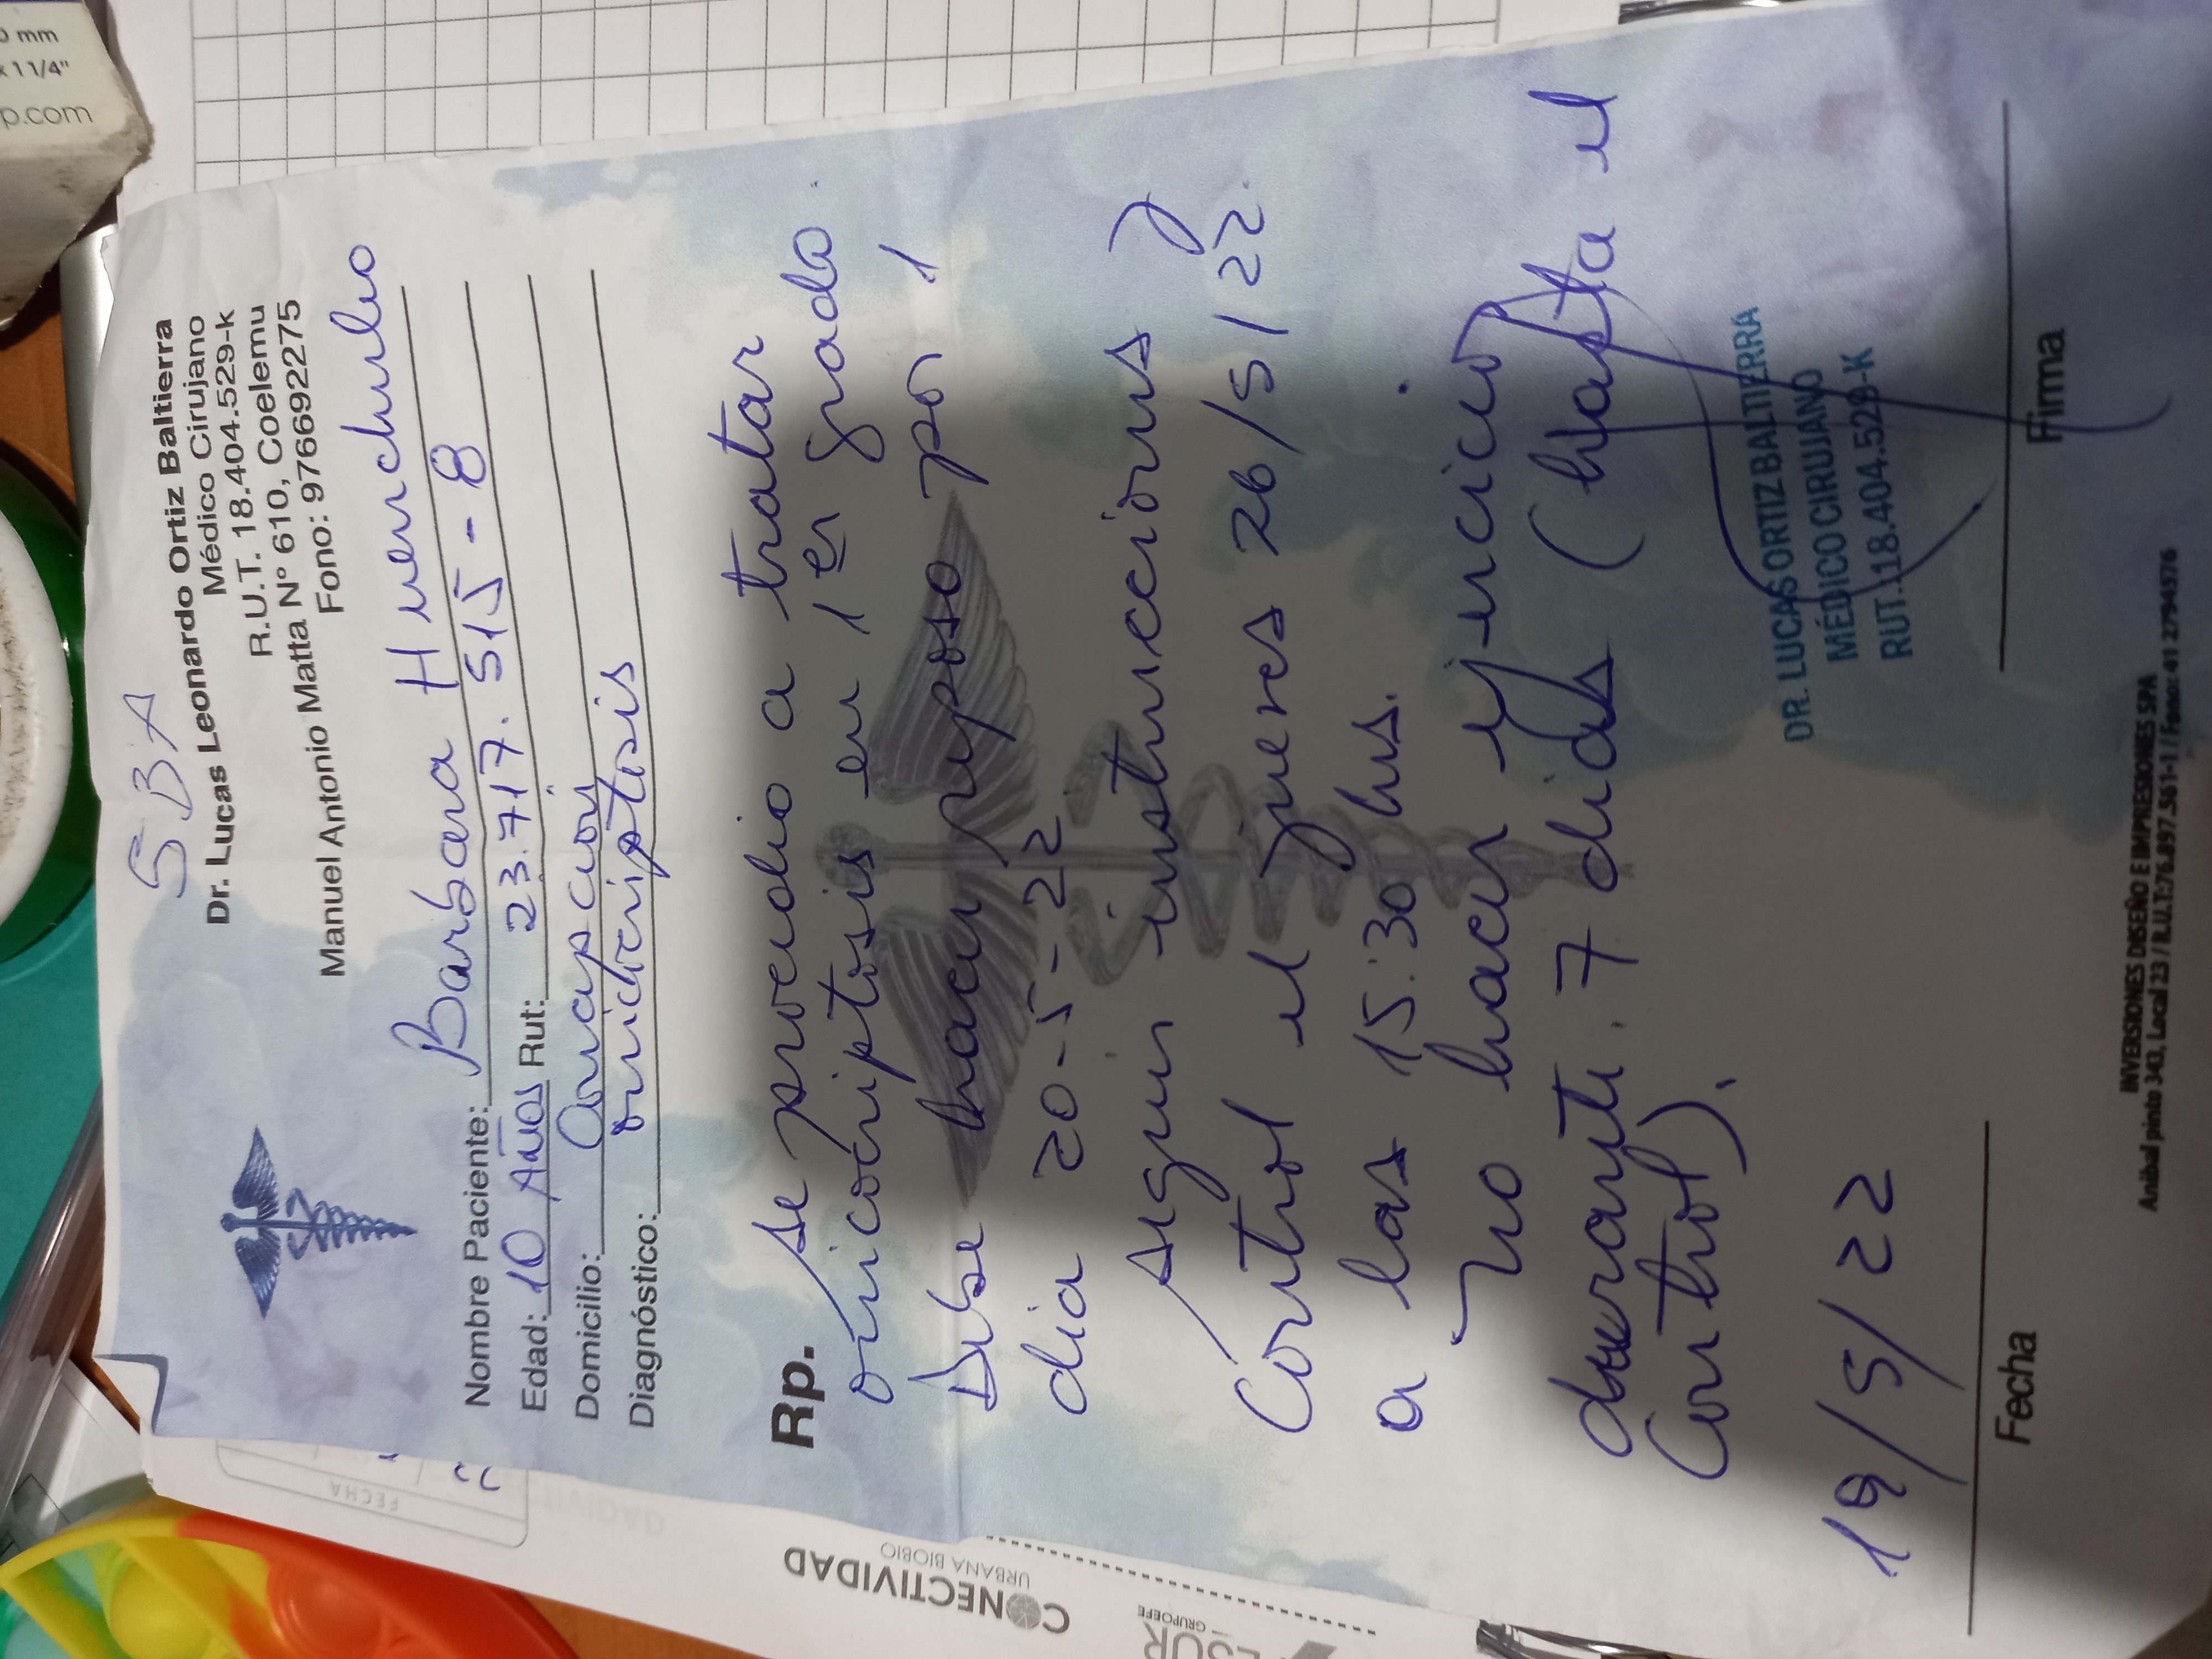 0 mm
x 1 1/4"
p.com
SBA
Dr. Lucas Leonardo Ortiz Baltierra
Médico Cirujano
R.U.T. 18.404.529-k
Manuel Antonio Matta N° 610, Coelemu
Fono: 976692275
Nombre Paciente: Barbara Huenchulao
Edad: 10 Años Rut: 23.717.515-8
Domicilio:
Diagnóstico: onicocriptosis
Rp. se procedio a tratar
onicocriptosis en 1er grado.
Debe hacer reposo por 1
dia 20-5-22
seguir instrucciones y
Control el jueves 26/5/22.
a las 15:30 hrs.
no hacer ejercicio
durante 7 dias (hasta el
Control).
19/5/22
Fecha
DR. LUCAS ORTIZ BALTIERRA
MÉDICO CIRUJANO
RUT.:18.404.529-K
Firma
INVERSIONES DISEÑO E IMPRESIONES SPA
Anibal pinto 343, Local 23 / R.U.T:76.897.561-1 / Fono: 41 2794576
FECHA
CONECTIVIDAD
URBANA BIOBIO
GRUPOEFE